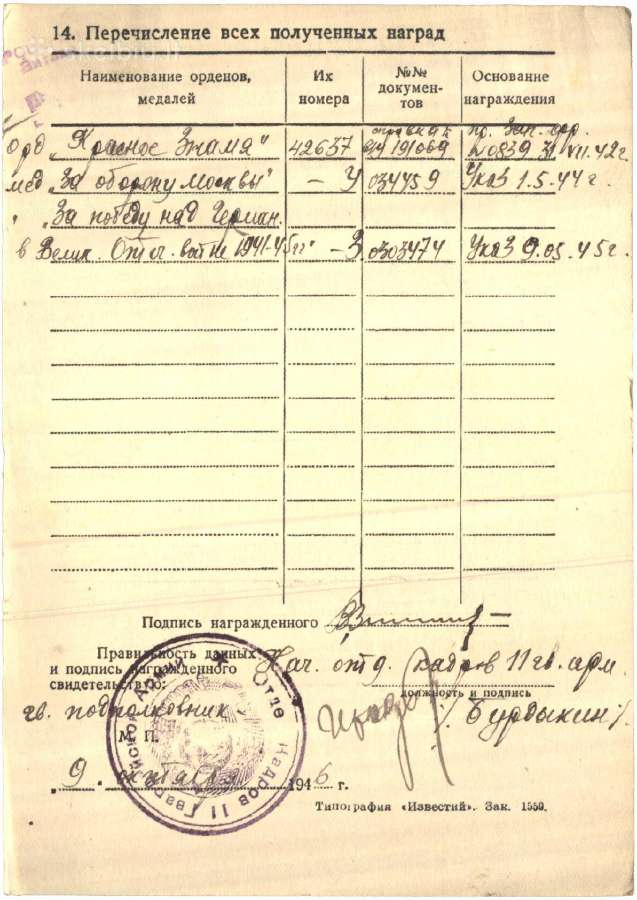 14. Перечисление всех полученных наград
Наименование орденов, медалей
Их номера
№№ документов
Основание награждения
орд „Красное Знамя" 42637 191069 по Зап. фр. N0839 31 VII.42г.
мед „За оборону Москвы" – У 034459 Указ 1.5.44 г.
" „За победу над Герман.
в Велик. Отеч. войне 1941-45гг" – З 0303474 Указ 9.05.45 г.
Подпись награжденного
Правильность данных
и подпись награжденного Нач. отд. кадров 11 гв. арм.
свидетельствую: должность и подпись
гв. подполковник /Бурдыкин/
М. П.
„9„ октября 1946 г.
Отде Кадров 11 Гвардейской Армии
Типография «Известий». Зак. 1550.